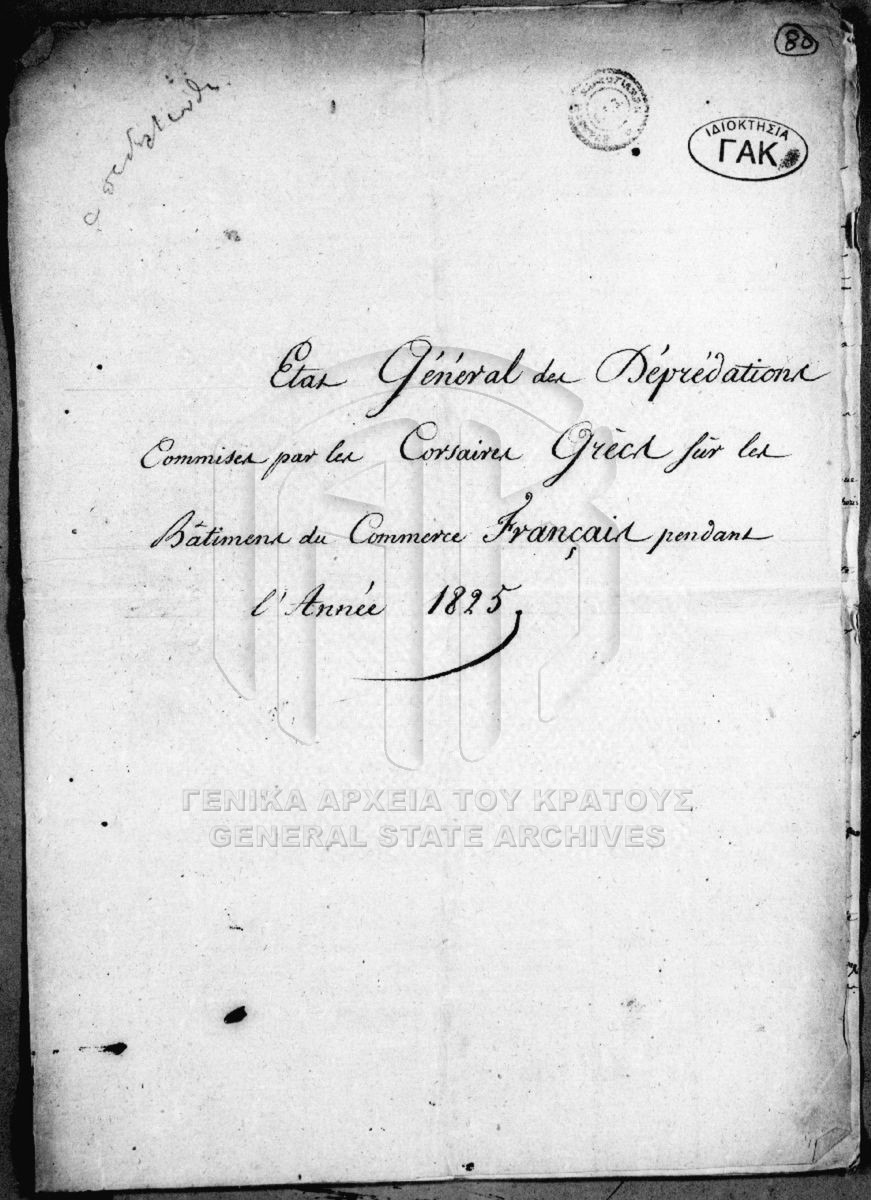 80
ΙΔΙΟΚΤΗΣΙΑ
ΓΑΚ
Etat Général des Déprédations
Commises par les Corsaires Grècs sûr les
Bâtimens du Commerce Français pendant
l'Année 1825.
ΓΕΝΙΚΑ ΑΡΧΕΙΑ ΤΟΥ ΚΡΑΤΟΥΣ
GENERAL STATE ARCHIVES